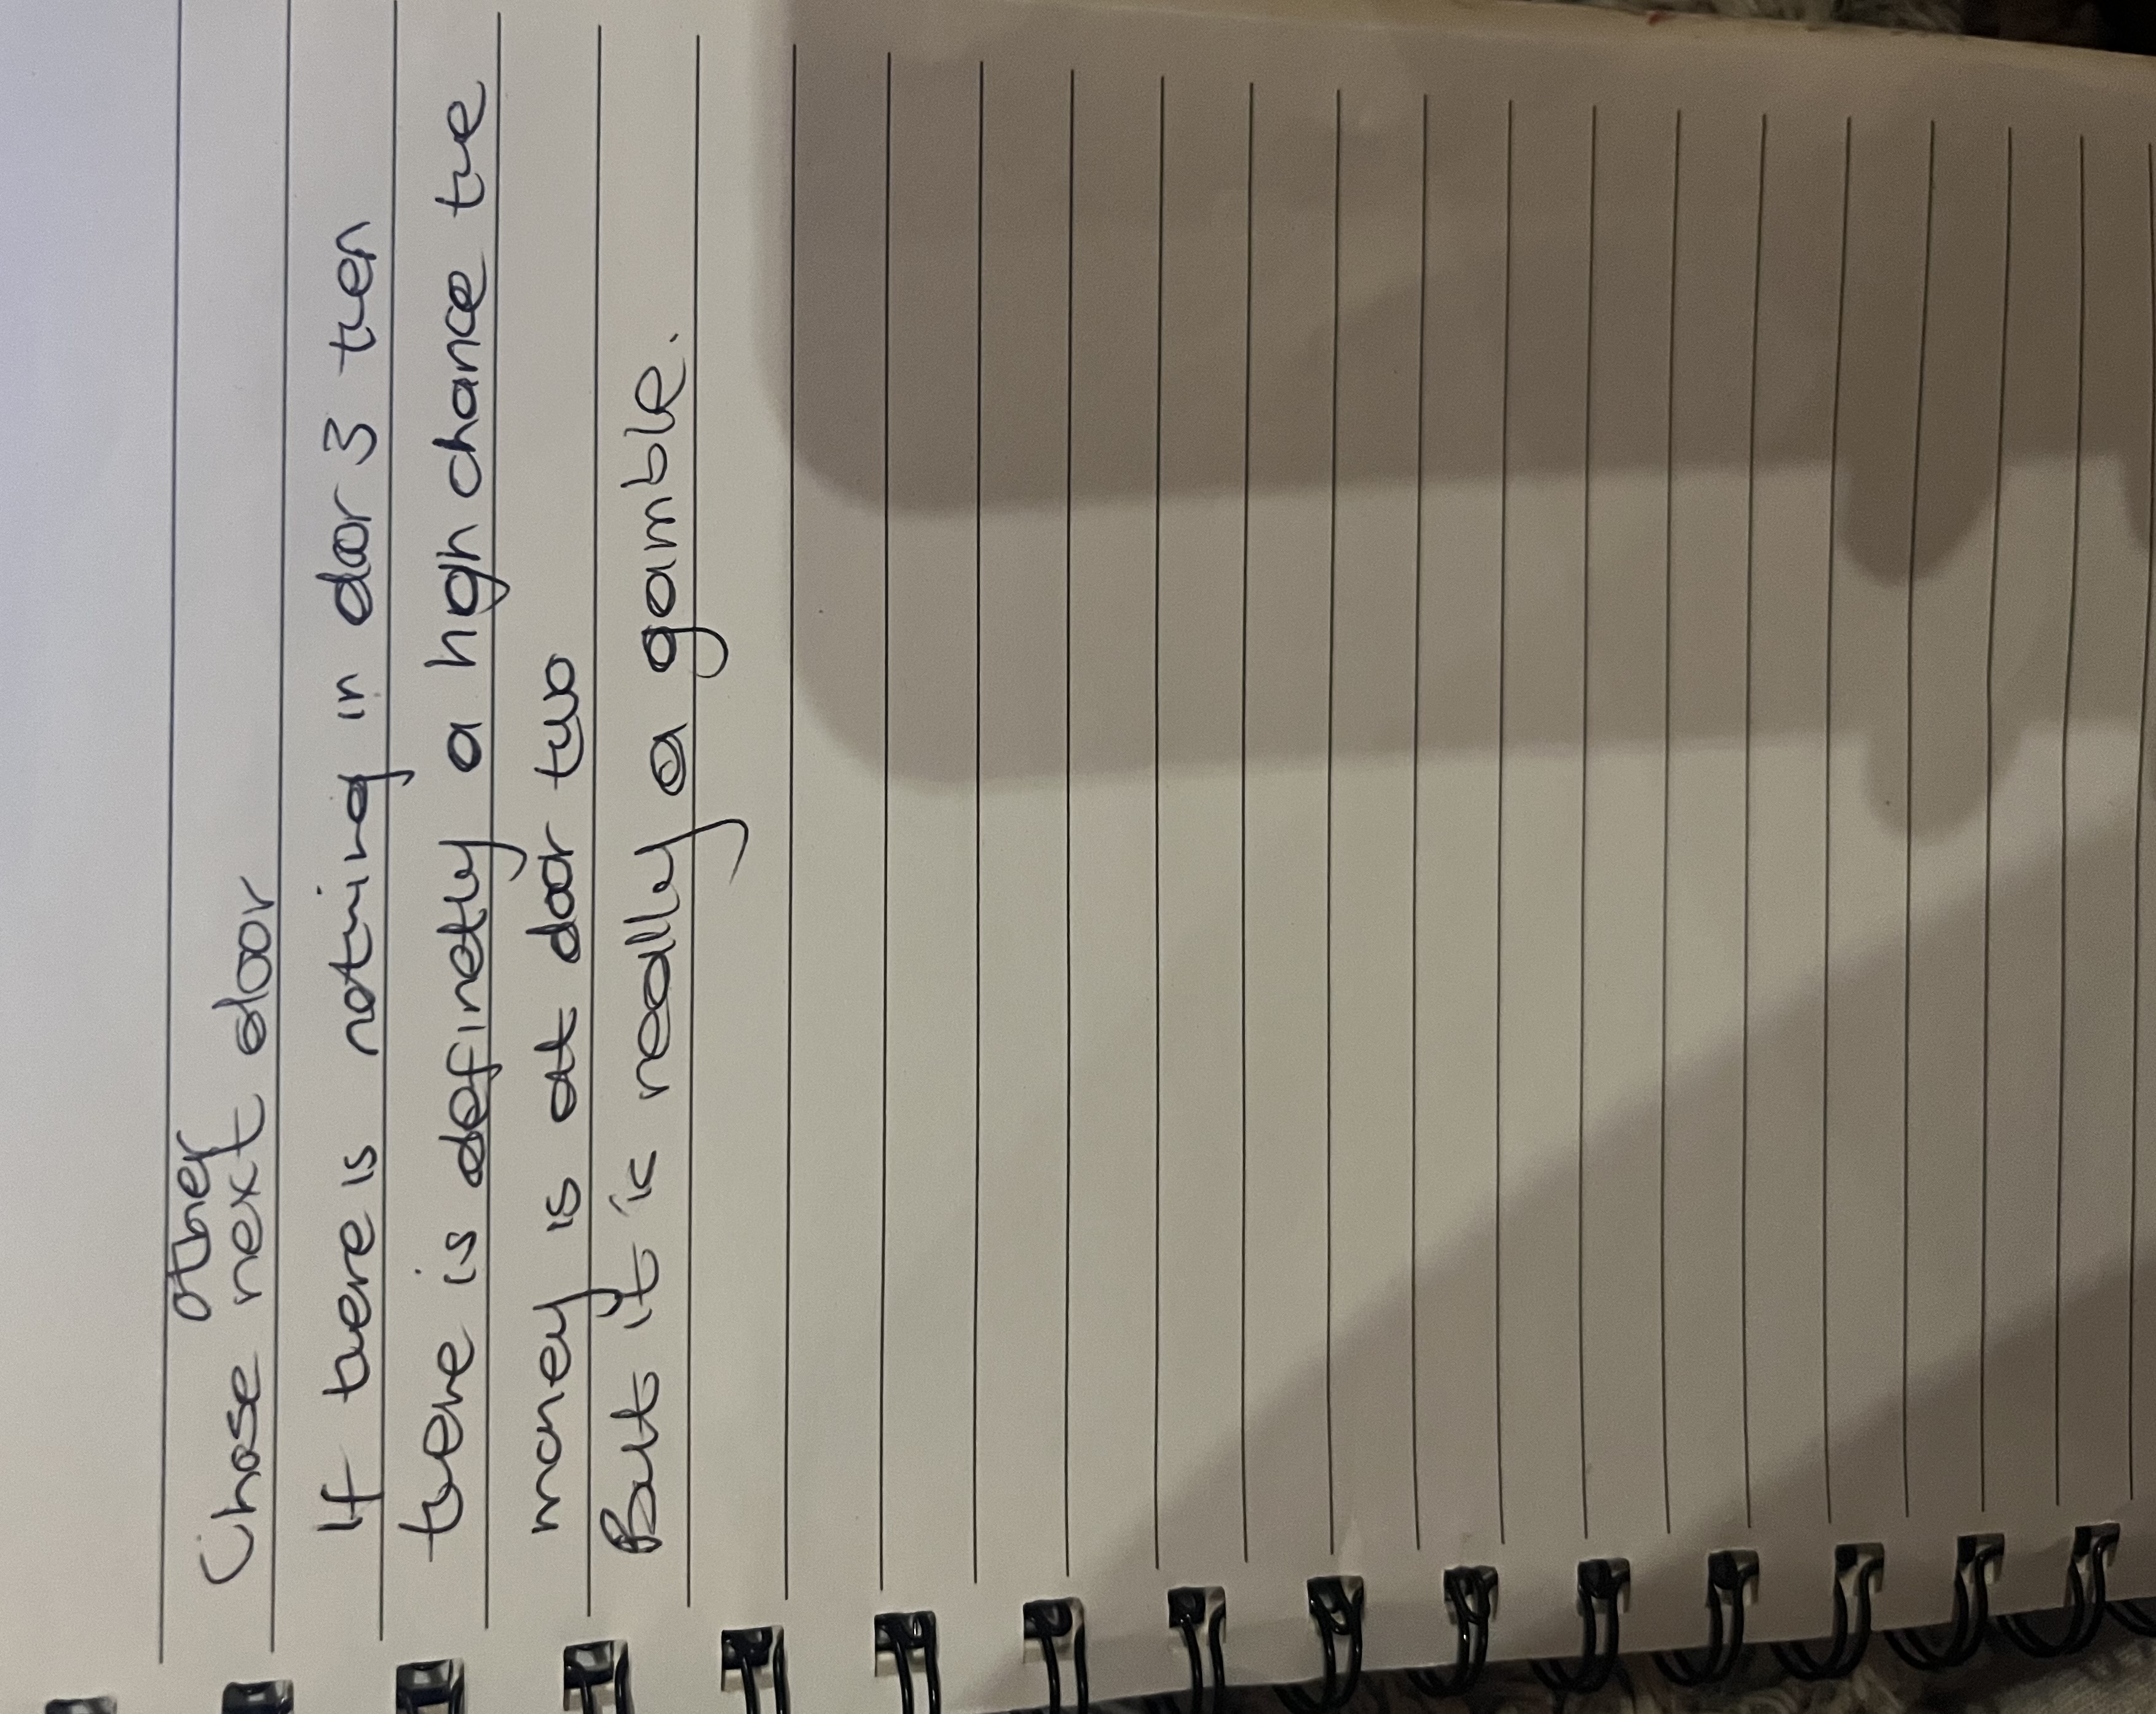 other
Chose next door
If there is nothing in door 3 then
there is definetly a high chance the
money is at door two
But it is really a gamble.